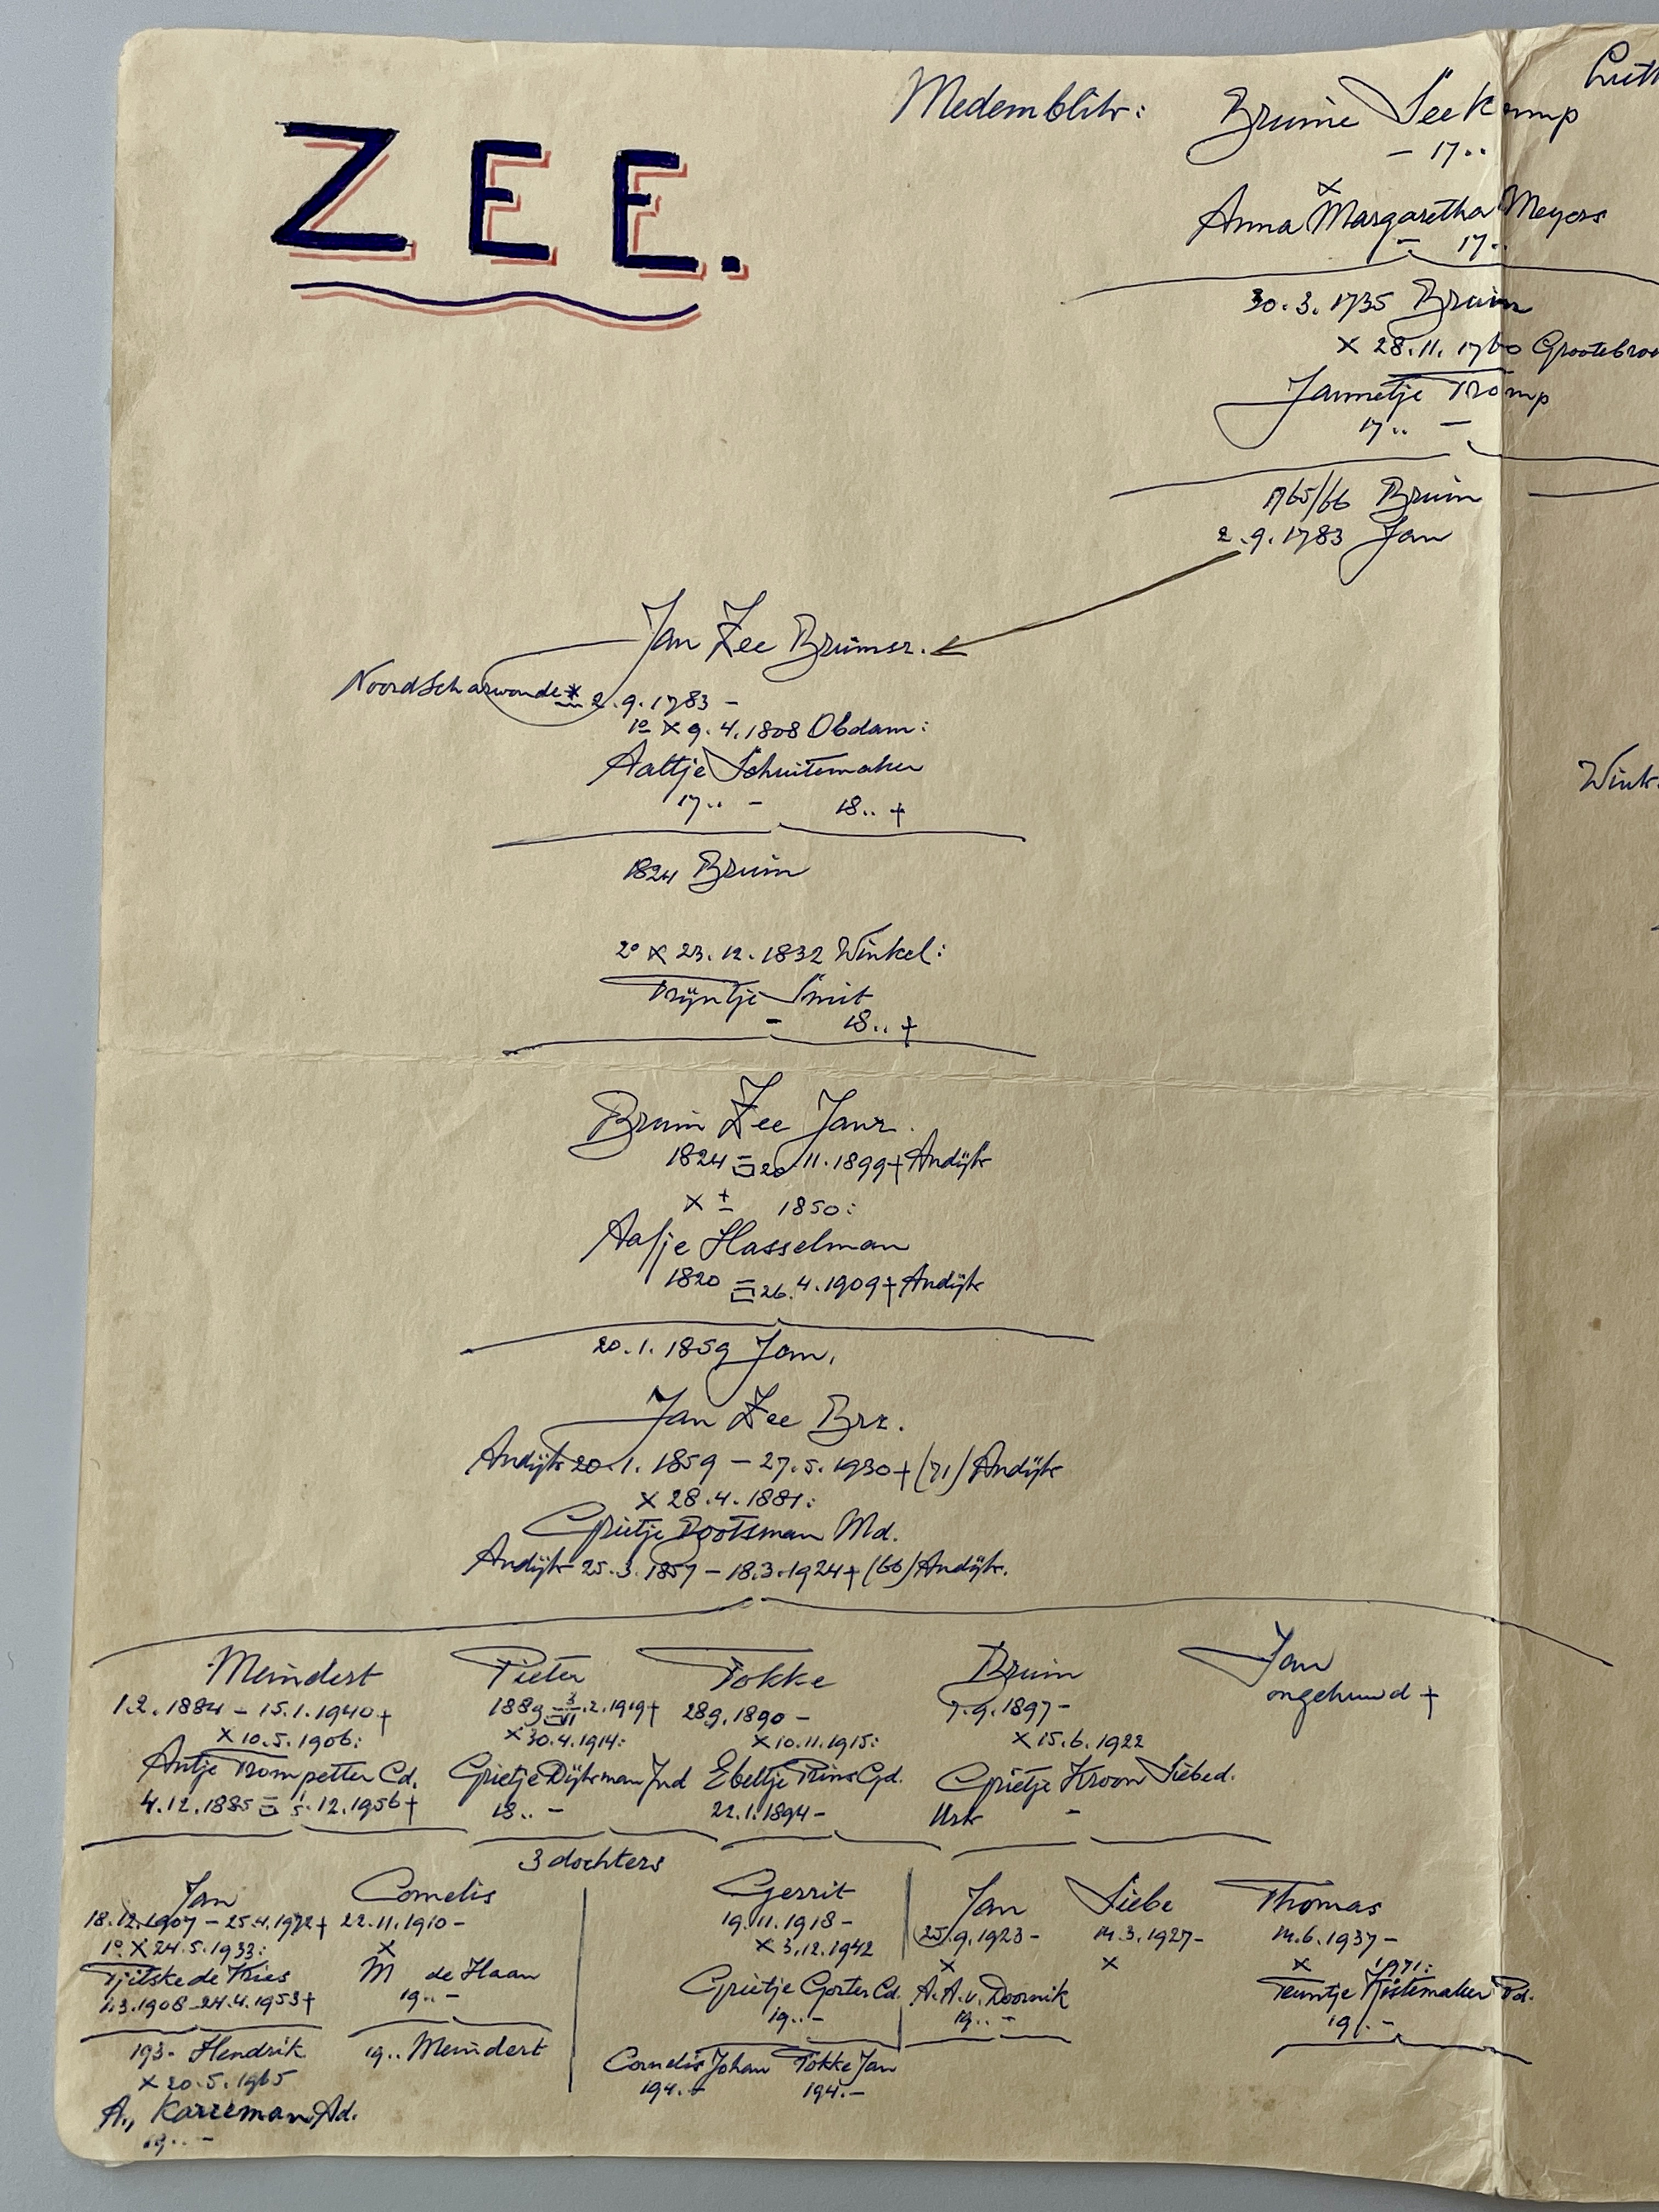 ZEE.
Medemblik:
Bruine Seekamp
- 17..
x
Anna Margaretha Meyers
- 17..
30.3.1735 Bruin
x 28.11.1760
Jannetje Tromp
17.. -
1765/66 Bruin
2.9.1783 Jan
Jan Zee Bruinsz.
Noordscharwoude * 2.9.1783 -
1º x 9.4.1808 Obdam:
Aaltje Schuitemaker
17.. - 18.. +
1824 Bruin
2º x 23.12.1832 Winkel:
Trijntje Smit
- 18.. +
Bruin Zee Janz.
1824 - 20.11.1899 + Andijk
x ± 1850:
Aafje Hasselman
1820 - 26.4.1909 + Andijk
20.1.1859 Jan.
Jan Zee Brz.
Andijk 20.1.1859 - 27.5.1930 + (71) Andijk
x 28.4.1881:
Grietje Bootsman Md.
Andijk 25.3.1857 - 18.3.1924 + (66) Andijk.
Meindert Pieter Fokke Bruin Jan
1.2.1884 - 15.1.1940 + 1889 .2.1919 + 28.9.1890 - 7.9.1897 - ongehuwd +
x 10.5.1906: x 30.4.1914: x 10.11.1915: x 15.6.1922
Antje Trompetter Cd. Grietje Dijkman Jnd Ebeltje Prins Gd. Grietje Kroon Siebed.
4.12.1885 5.12.1956 + 18.. - 22.1.1894 - Urk -
3 dochters
Jan Cornelis Gerrit Jan Siebe Thomas
18.12.1907 - 25.4.1972 + 22.11.1910 - 19.11.1918 - 25.9.1923 - 14.3.1927 - 14.6.1937 -
1º x 24.5.1933: x x 3.12.1942 x x x 1971:
Tjitske de Vries M de Haan Grietje Gorter Cd. A.A.v. Doornik Teuntje Kistemaker Pd.
.3.1908 - 24.4.1953 + 19.. - 19.. - 19.. - 19.. -
193- Hendrik 19.. Meindert Cornelis Johan Fokke Jan
x 20.5.1965 194.- 194.-
A., Karreman Ad.
19.. -